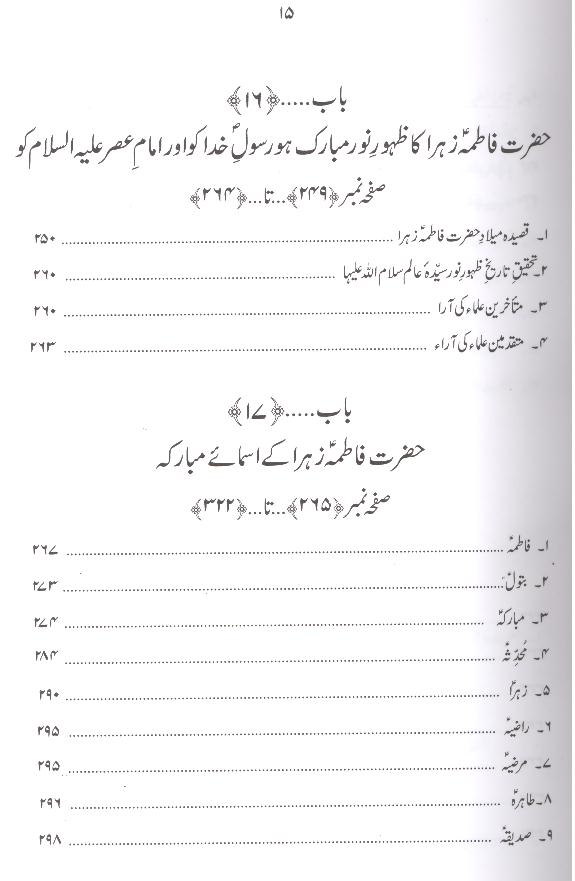 ۱۵
باب.....﴿۱۶﴾
حضرت فاطمہؑ زہرا کا ظہورِ نور مبارک ہو رسولِؐ خدا کو اور امامِ عصر علیہ السلام کو
صفحہ نمبر ﴿۲۴۹﴾...تا...﴿۲۶۴﴾
۱۔ قصیدہ میلادِ حضرت فاطمہؑ زہرا ........ ۲۵۰
۲۔ تحقیقِ تاریخِ ظہورِ نور سیّدہٴ عالم سلام اللہ علیہا ........ ۲۶۰
۳۔ متأخرین علماء کی آرا ........ ۲۶۰
۴۔ متقدمین علماء کی آراء ........ ۲۶۳
باب.....﴿۱۷﴾
حضرت فاطمہؑ زہرا کے اسمائے مبارکہ
صفحہ نمبر ﴿۲۶۵﴾...تا...﴿۳۲۲﴾
۱۔ فاطمہؑ ........ ۲۶۷
۲۔ بتولؑ ........ ۲۷۳
۳۔ مبارکہؑ ........ ۲۷۴
۴۔ مُحدِّثہؑ ........ ۲۸۴
۵۔ زہراؑ ........ ۲۹۰
۶۔ راضیہؑ ........ ۲۹۵
۷۔ مرضیہؑ ........ ۲۹۵
۸۔ طاہرہؑ ........ ۲۹۶
۹۔ صدیقہؑ ........ ۲۹۸